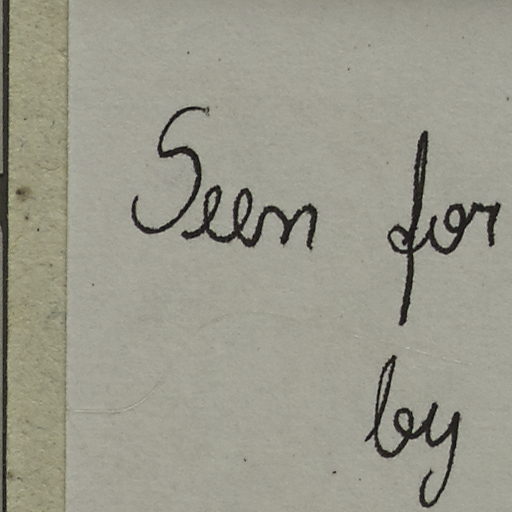 Seen for
by